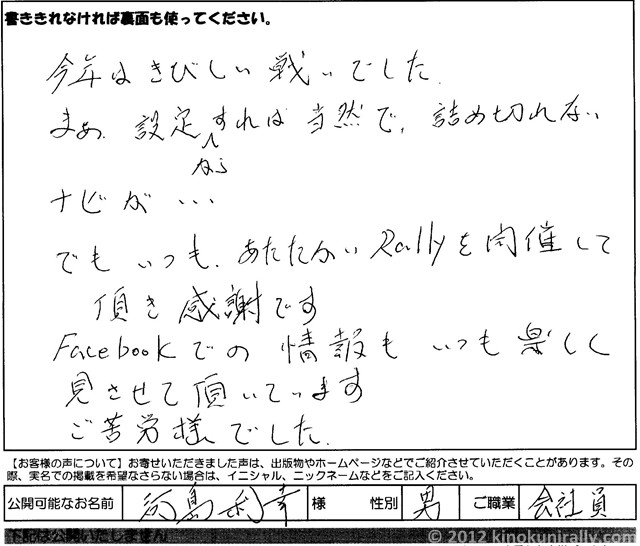 書ききれなければ裏面も使ってください。
今年はきびしい戦いでした.
まあ. 設定からすれば当然で, 詰め切れない
ナビが・・・
でもいつも. あたたかいRallyを開催して
頂き感謝です
Facebookでの情報もいつも楽しく
見させて頂いています
ご苦労様でした.
【お客様の声について】お寄せいただきました声は、出版物やホームページなどでご紹介させていただくことがあります。その
際、実名での掲載を希望なさらない場合は、イニシャル、ニックネームなどをご記入ください。
公開可能なお名前 島利幸 様 性別 男 ご職業 会社員
下記は公開いたしません
© 2012 kinokunirally.com